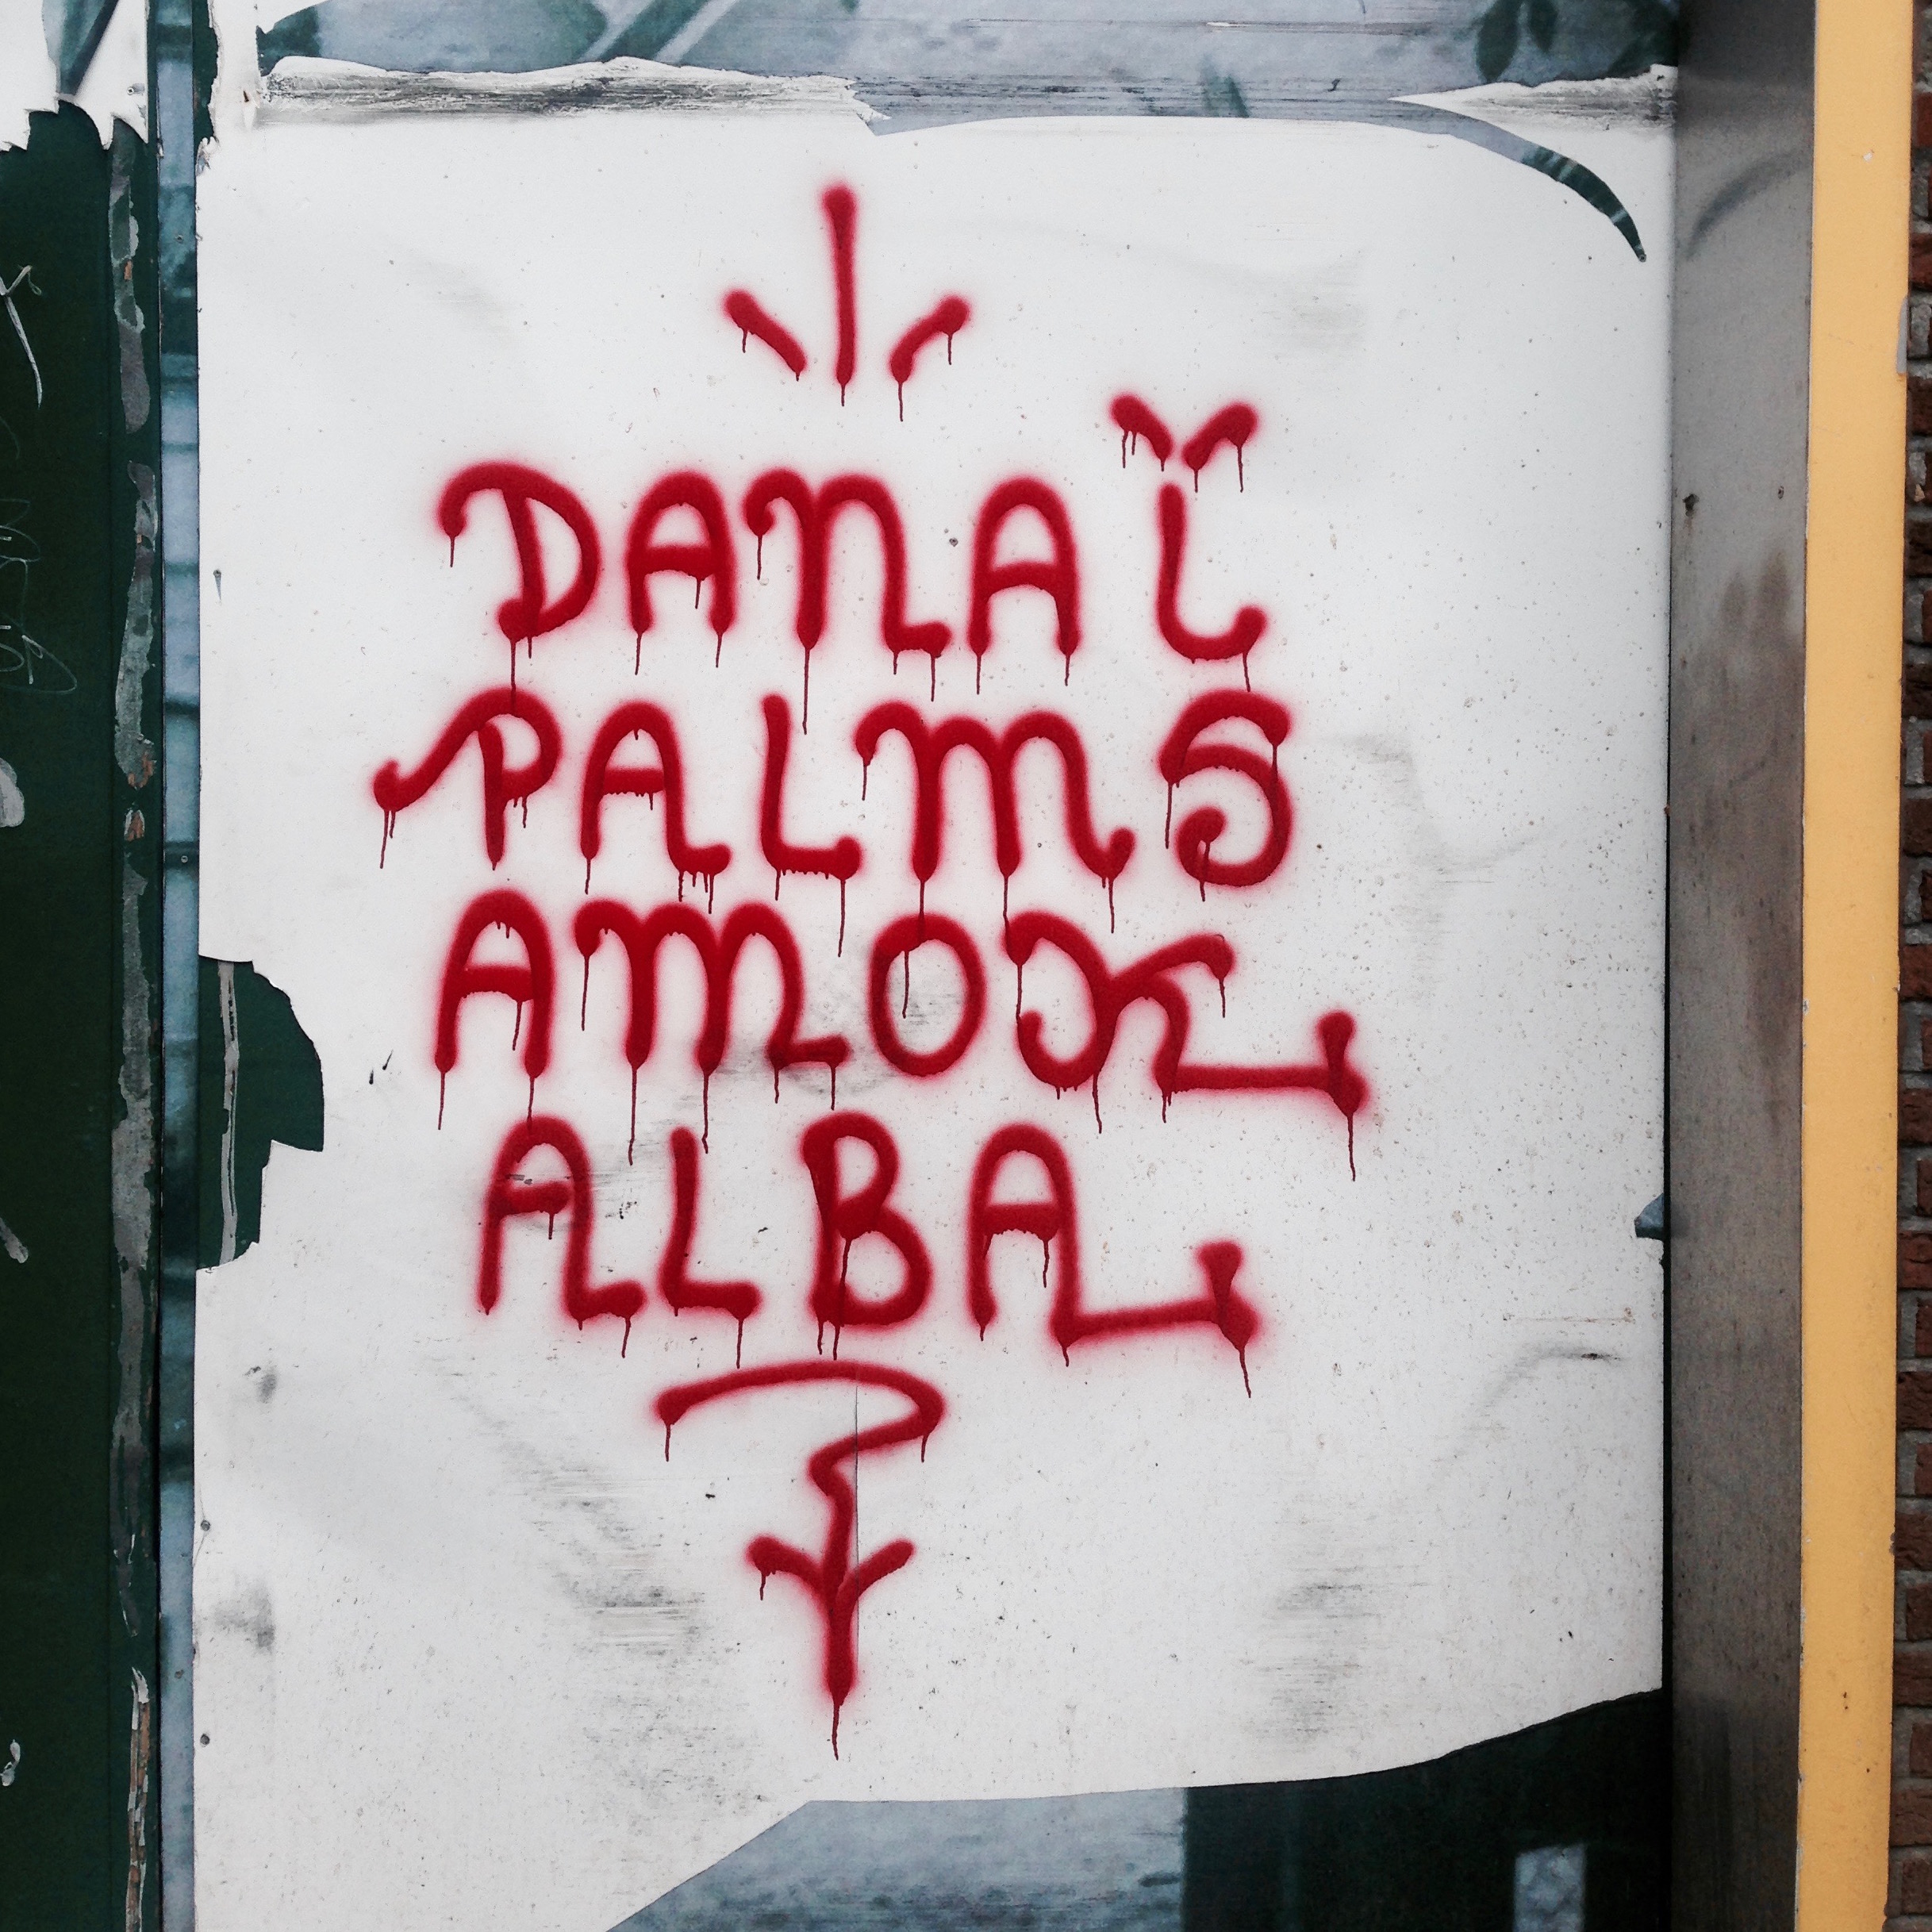 DANAÏ
PALMS
AMOX
ALBA